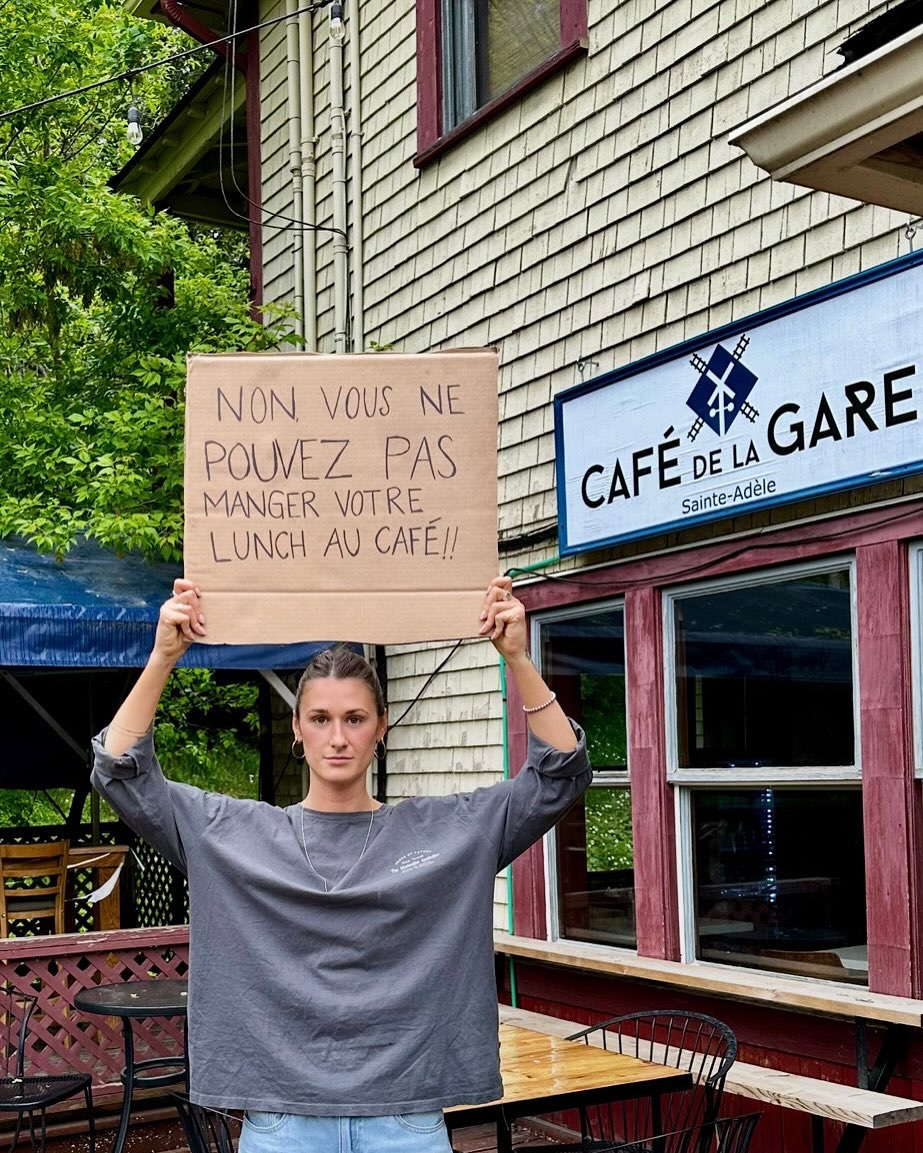 NON, VOUS NE
POUVEZ PAS
MANGER VOTRE
LUNCH AU CAFÉ!!
CAFÉ DE LA GARE
Sainte-Adèle